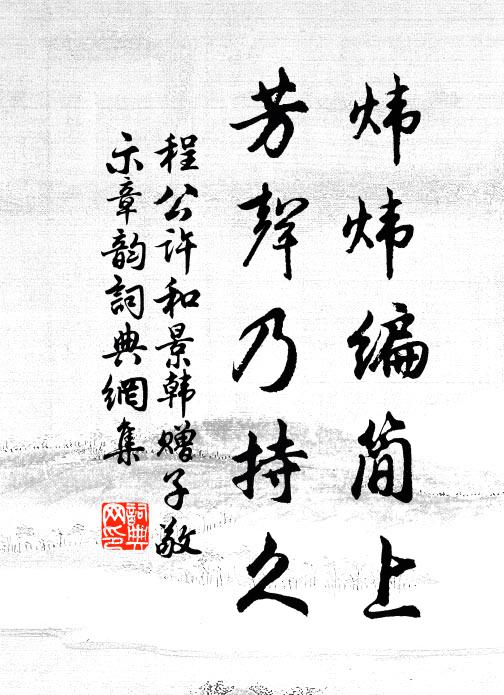 炜炜编简上
芳聲乃持久
程公许和景韩赠子敬
示章韵詞典網集
詞典
网印